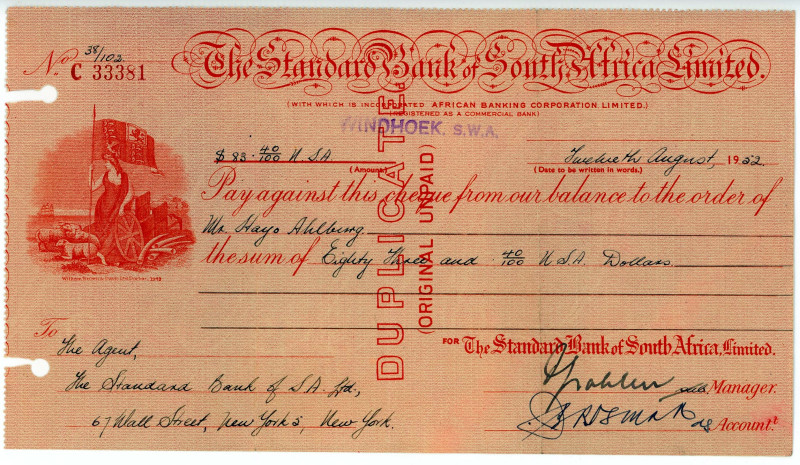 38/102
No C 33381
The Standard Bank of South Africa Limited.
(WITH WHICH IS INCORPORATED AFRICAN BANKING CORPORATION, LIMITED.)
(REGISTERED AS A COMMERCIAL BANK)
WINDHOEK, S.W.A.
$ 83 . 40/100 U.S.A
(Amount)
Twelveth August, 1952
(Date to be written in words.)
Pay against this cheque from our balance to the order of
Mr. Hayo Ahlburg
the sum of Eighty Three and 40/100 U.S.A. Dollars
DUPLICATE.
(ORIGINAL UNPAID)
To
The Agent,
The Standard Bank of S.A. Ltd.,
67 Wall Street, New York 5, New York.
FOR The Standard Bank of South Africa, Limited.
Manager.
Account.t